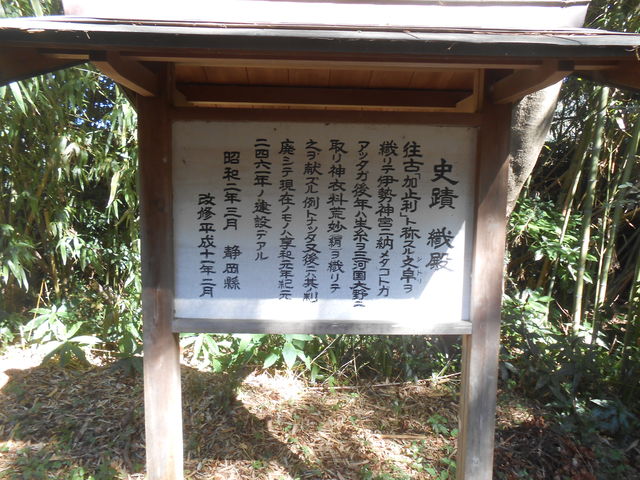 史蹟 織殿
往古「加止利」ト称スル文卓ヲ
織リテ伊勢神宮ニ納メタコトガ
アッタガ後年ハ生糸ヲ三河国大野ニ
取リ神衣料荒妙絹ヲ織リテ
之ヲ献ズル例トナッタ又後ニハ其制
廃シテ現在ノモノハ享和元年紀元
二四六一年ノ建設デアル
昭和二年三月 静岡縣
改修平成十一年二月